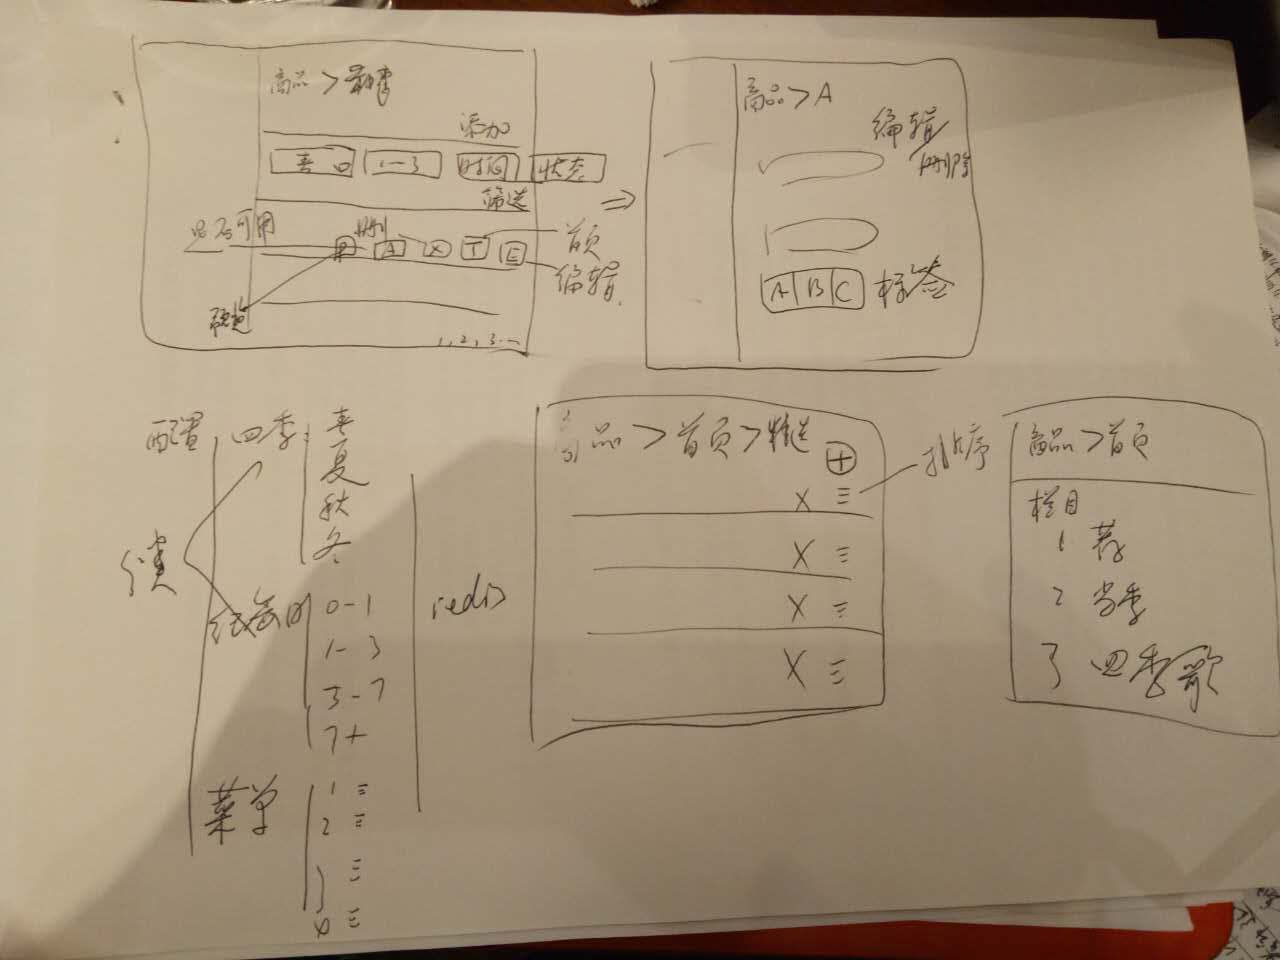 商品 > 新建
添加
春 口 1-3 时间 状态
筛选
是否可用 删
A X T E
首页
编辑
1, 2, 3...
商品 > A
编辑
删除
A B C 标签
配置 四季 春
夏
秋
冬
0-1
1-3
3-7
7+
菜单 1
2
redis
品 > 首页 > 精选
+
X
排序
X
X
X
商品 > 首页
栏目
1 荐
2 当季
3 四季歌